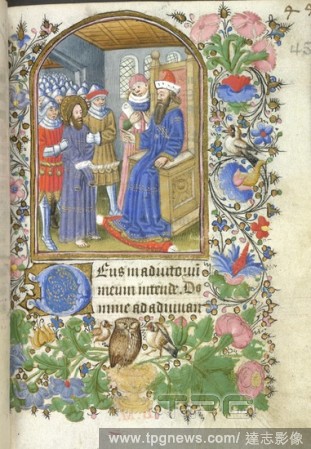 45
Deus in adiutori
meum intende. Do
mine ad adiuuan
TPG
www.tpgnews.com/ 達志影像